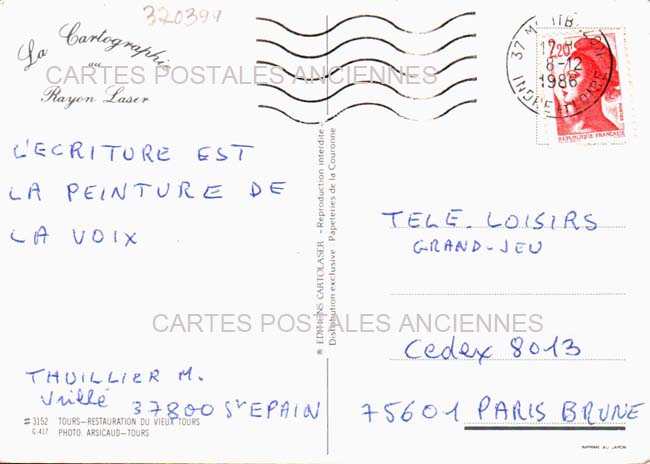 320399
La Cartographie
au
Rayon Laser
CARTES POSTALES ANCIENNES
37 M
8-12
1986
INDRE ET LOIRE
2,20
POSTES
REPUBLIQUE FRANÇAISE
L'ECRITURE EST
LA PEINTURE DE
LA VOIX
® EDITIENS CARTOLASER - Reproduction interdite -
Distribution exclusive : Papeteries de la Couronne
TELE. LOISIRS
GRAND-JEU
CARTES POSTALES ANCIENNES
Cedex 8013
75601 PARIS BRUNE
THUILLIER M.
37800 St EPAIN
# 3152 TOURS-RESTAURATION DU VIEUX TOURS
G-417 PHOTO ARSICAUD-TOURS
IMPRIMÉ AU JAPON